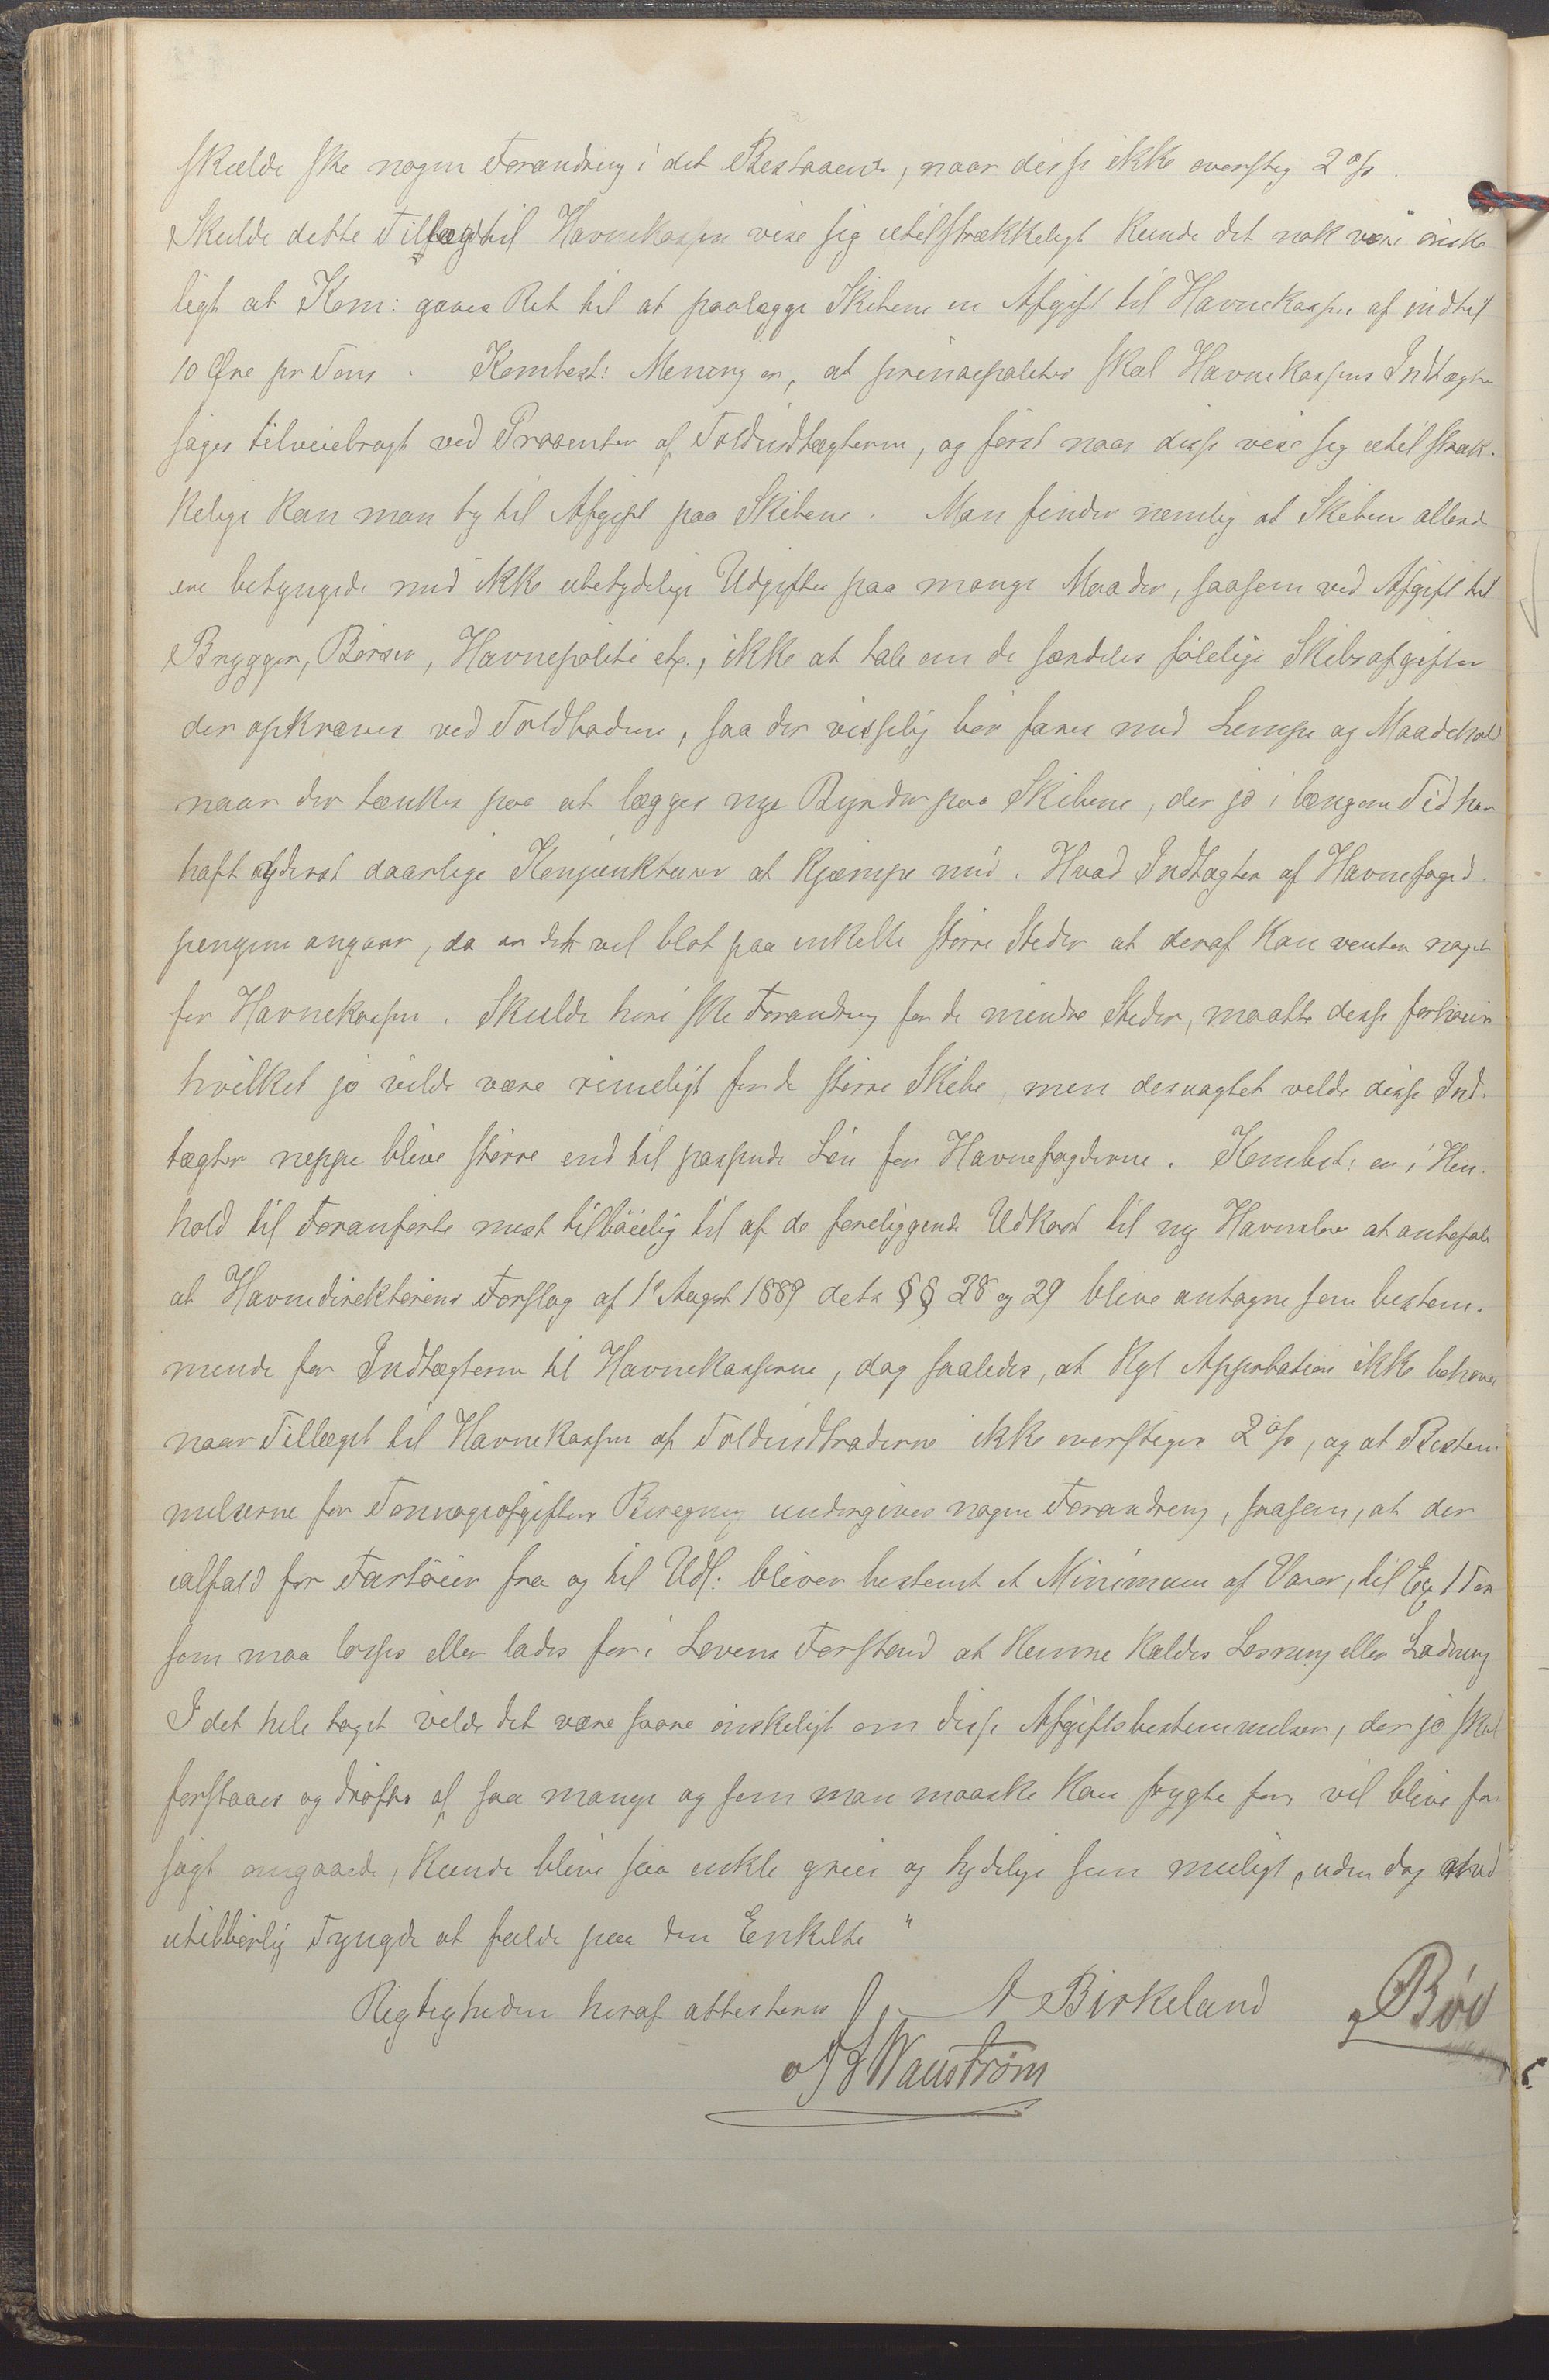 skulde ske nogen Forandring i det Bestaaende, naar disse ikke oversteg 2 %.
Skulde dette Tillæg til Havnekassen vise sig utilstrækkeligt kunde det nok være önske
ligt at Kom: gaves Ret til at paalægge Skibene en Afgift til Havnekassen af indtil
10 Øre pr Tons. Kombest: Mening er, at principaliter skal Havnekassens Indtægter
søges tilveiebragt ved Procenter af Toldindtægterne, og först naar disse vise sig utilstræk-
kelige kan man ty til Afgift paa Skibene. Man finder nemlig at Skibene allerede
ere betyngede med ikke ubetydelige Udgifter paa mange Maader, saasom ved Afgift til
Brygger, Börser, Havnepoliti etc., ikke at tale om de særdeles fölelige Skibsafgifter
der opkræves ved Toldboderne, saa der visselig bör fares med Lempe og Maadehold
naar der tænkes paa at lægges nye Byrder paa Skibene, der jo i længere Tid har
haft yderst daarlige Konjunkturer at kjæmpe med. Hvad Indtægter af Havnefoged-
pengene angaar, da er det vel blot paa enkelte större Steder at deraf kan ventes noget
for Havnekassen. Skulde heri ske Forandring for de mindre Steder, maatte disse forhöies
hvilket jo vilde være rimeligt for de större Skibe, men desuagtet vilde disse Ind-
tægter neppe blive större end til passende Lön for Havnefogderne. Kombest: er i Hen-
hold til Foranförte mest tilböielig til af de foreliggende Udkast til ny Havnelov at anbefale
at Havnedirektörens Forslag af 1e August 1889 dets §§ 28 og 29 blive antagne som bestem-
mende for Indtægterne til Havnekasserne, dog saaledes, at Kgl Approbation ikke behöves
naar Tillæget til Havnekassen af Toldindtraderne ikke overstiger 2 %, og at Bestem-
melserne for Tonnageafgiftens Beregning undergives nogen Forandring, saasom, at der
ialfald for Fartöier fra og til Udl: bliver bestemt et Minimum af Varer, til Ex 1 Ton
som maa losses eller lades for i Lovens Forstand at kunne kaldes Losning eller Ladning
I det hele taget vilde det være saare önskeligt om disse Afgiftsbestemmelser, der jo skal
forstaaes og dröftes af saa mange og som man maaske kan frygte for vil blive for-
sögt omgaaede, kunde blive saa enkle greie og tydelige som muligt, uden dog med
utilbörlig Tyngde at falde paa den Enkelte "
Rigtigheden heraf attesteres A Birkeland Böe
Wanström